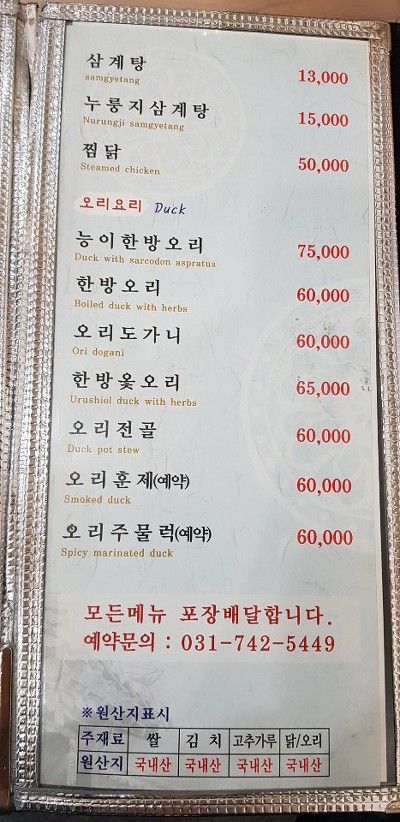 삼계탕 13,000
samgyetang
누룽지삼계탕 15,000
Nurungji samgyetang
찜닭 50,000
Steamed chicken
오리요리 Duck
능이한방오리 75,000
Duck with sarcodon aspratus
한방오리 60,000
Boiled duck with herbs
오리도가니 60,000
Ori dogani
한방옻오리 65,000
Urushiol duck with herbs
오리전골 60,000
Duck pot stew
오리훈제(예약) 60,000
Smoked duck
오리주물럭(예약) 60,000
Spicy marinated duck
모든메뉴 포장배달합니다.
예약문의 : 031-742-5449
※원산지표시
주재료 쌀 김치 고추가루 닭/오리
원산지 국내산 국내산 국내산 국내산